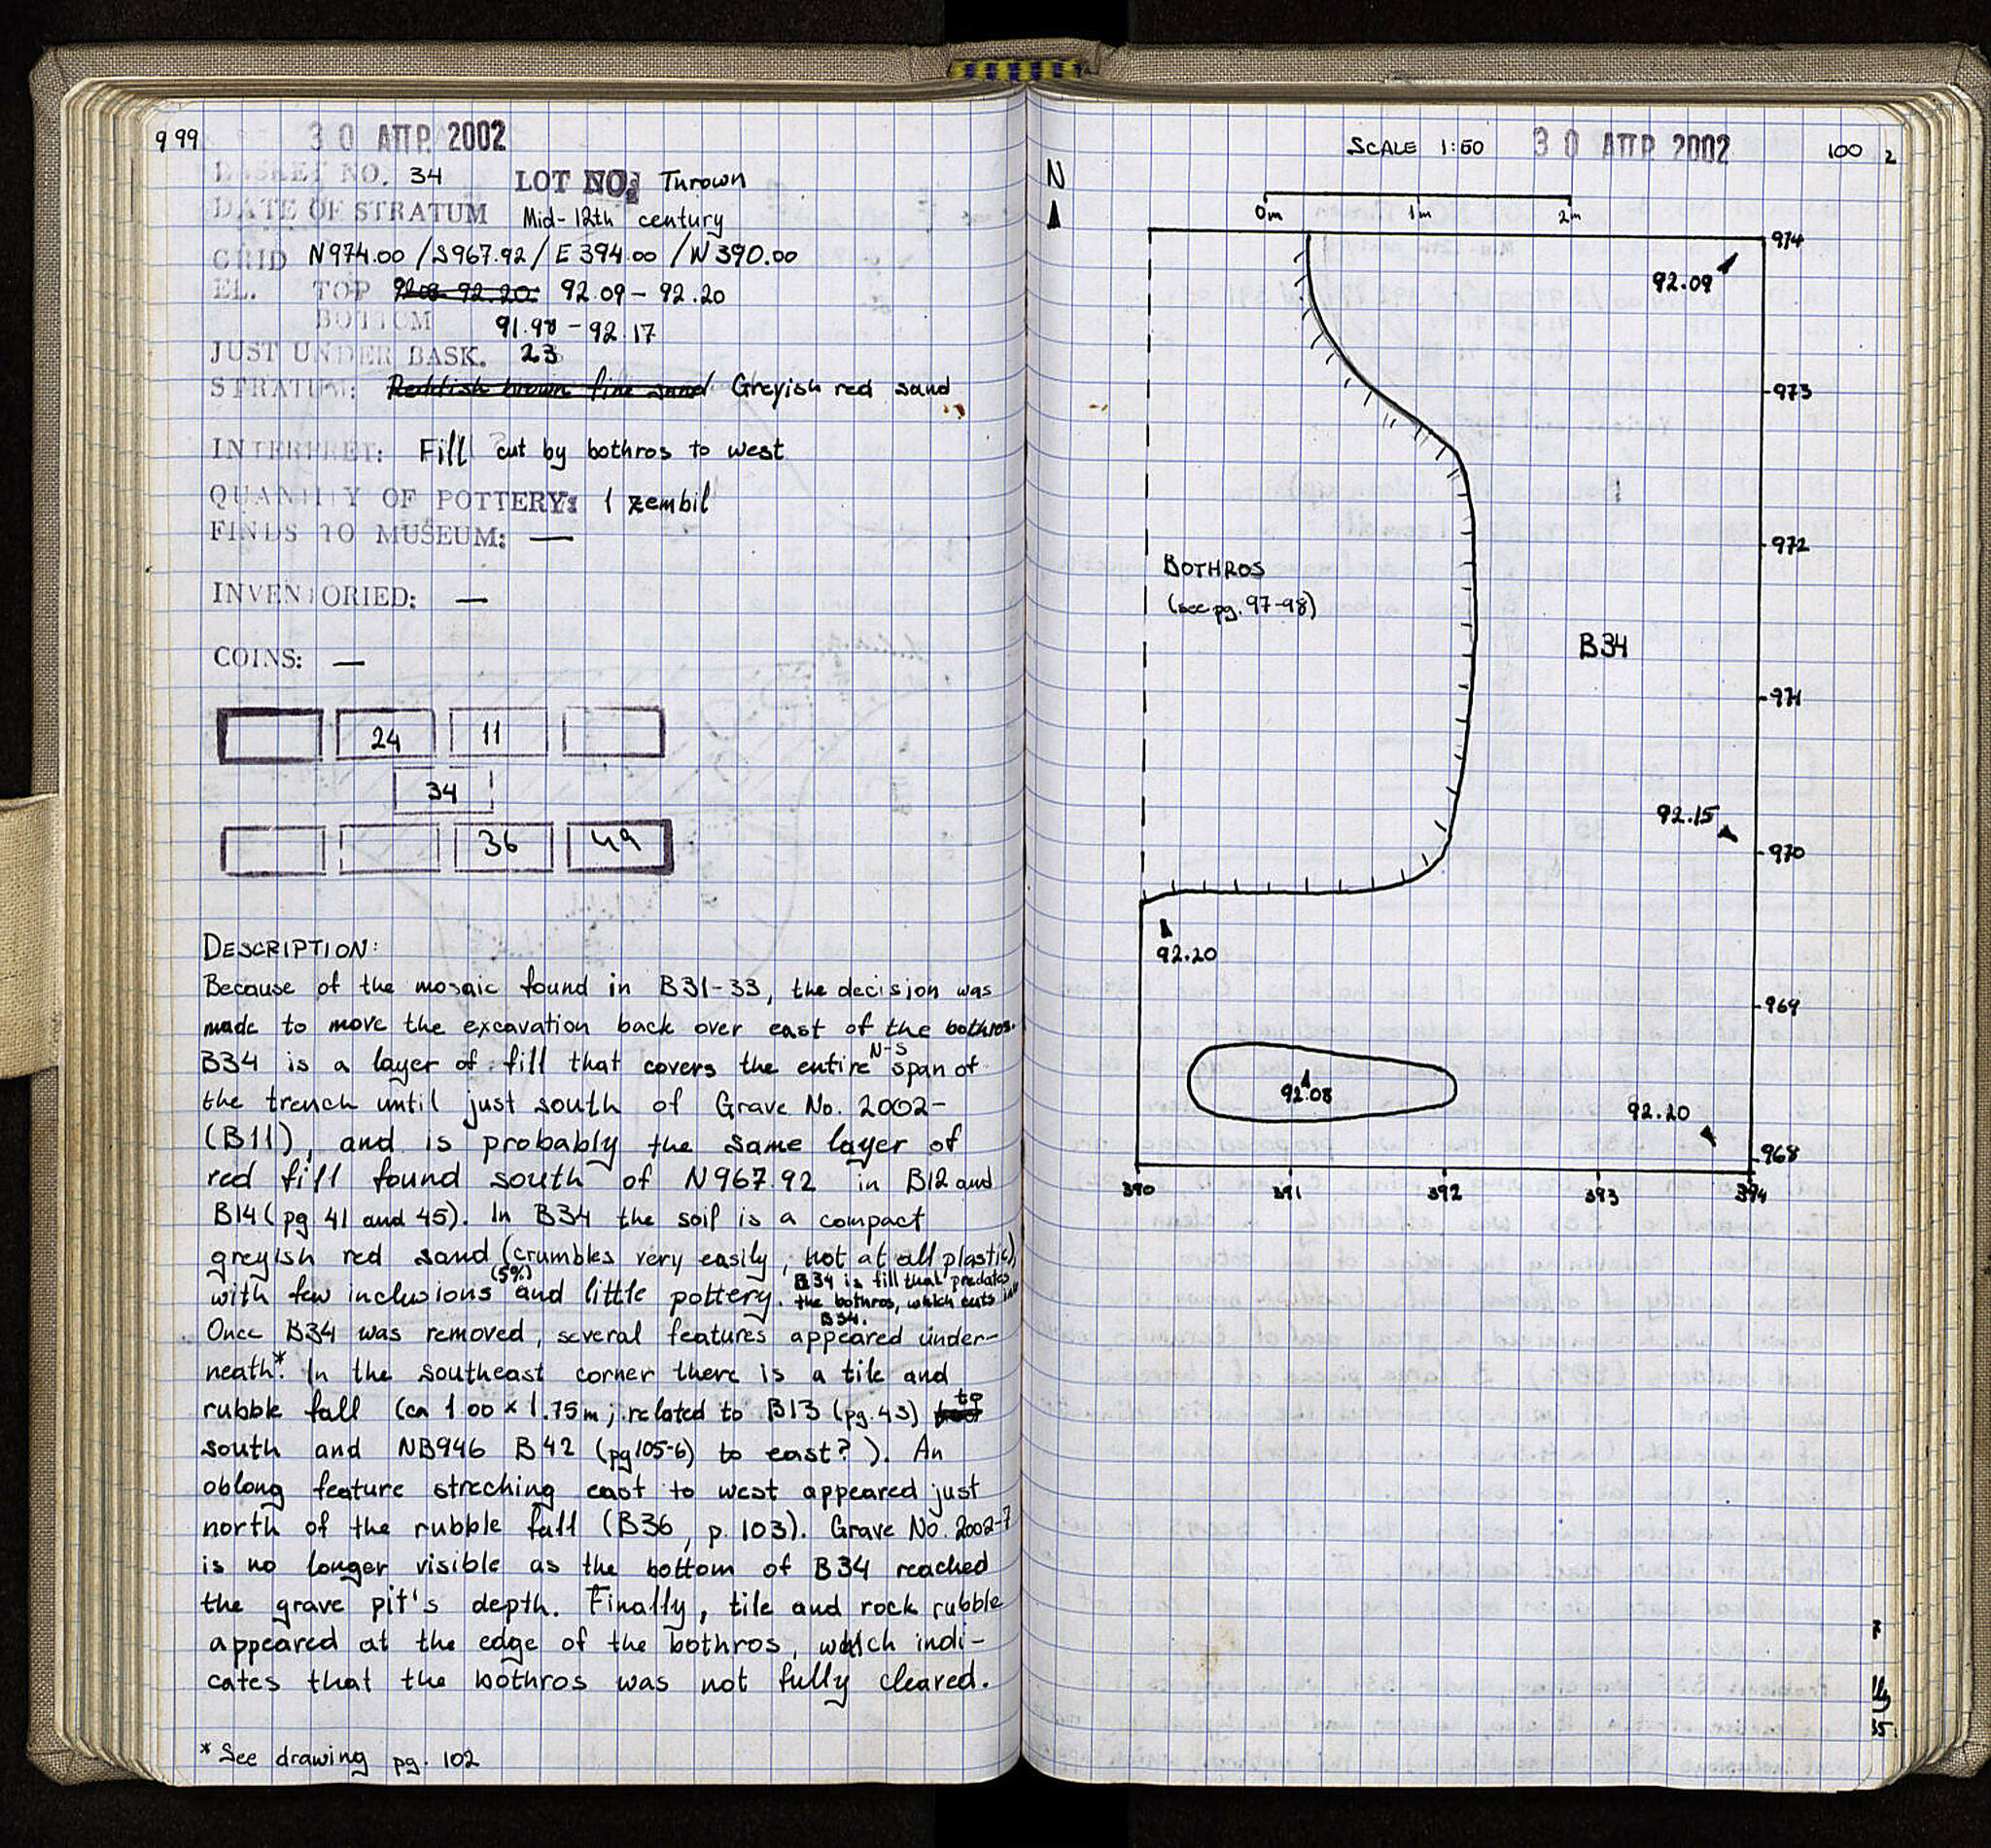 9 99
30 ΑΠΡ. 2002
BASKET NO. 34 LOT NO. Thrown
DATE OF STRATUM Mid-12th century
GRID N974.00 /S967.92/ E 394.00 /W390.00
EL. TOP 92.08 92.20: 92.09 – 92.20
BOTTOM 91.98 – 92.17
JUST UNDER BASK. 23
STRATUM: Reddish brown fine sand Greyish red sand
INTERPRET: Fill cut by bothros to west
QUANTITY OF POTTERY: 1 zembil
FINDS TO MUSEUM: —
INVENTORIED: —
COINS: —
24 11
34
36 49
DESCRIPTION:
Because of the mosaic found in B31-33, the decision was
made to move the excavation back over east of the bothros.
B34 is a layer of fill that covers the entire N-S span of
the trench until just south of Grave No. 2002-
(B11), and is probably the same layer of
red fill found south of N967.92 in B12 and
B14 (pg 41 and 45). In B34 the soil is a compact
greyish red sand (crumbles very easily, not at all plastic)
with few inclusions (5%) and little pottery. B34 is fill that predates
the bothros, which cuts into
B34.
Once B34 was removed, several features appeared under-
neath.* In the southeast corner there is a tile and
rubble fall (ca 1.00 x 1.75m; related to B13 (pg.43) to
south and NB946 B42 (pg105-6) to east?). An
oblong feature streching east to west appeared just
north of the rubble fall (B36, p. 103). Grave No. 2002-7
is no longer visible as the bottom of B34 reached
the grave pit's depth. Finally, tile and rock rubble
appeared at the edge of the bothros, which indi-
cates that the bothros was not fully cleared.
* See drawing pg. 102
SCALE 1:50 30 ΑΠΡ 2002 100 2
N
0m 1m 2m
974
92.09
973
972
BOTHROS
(see pg. 97-98)
B34
971
92.15
970
92.20
969
92.08
92.20
968
390 391 392 393 394